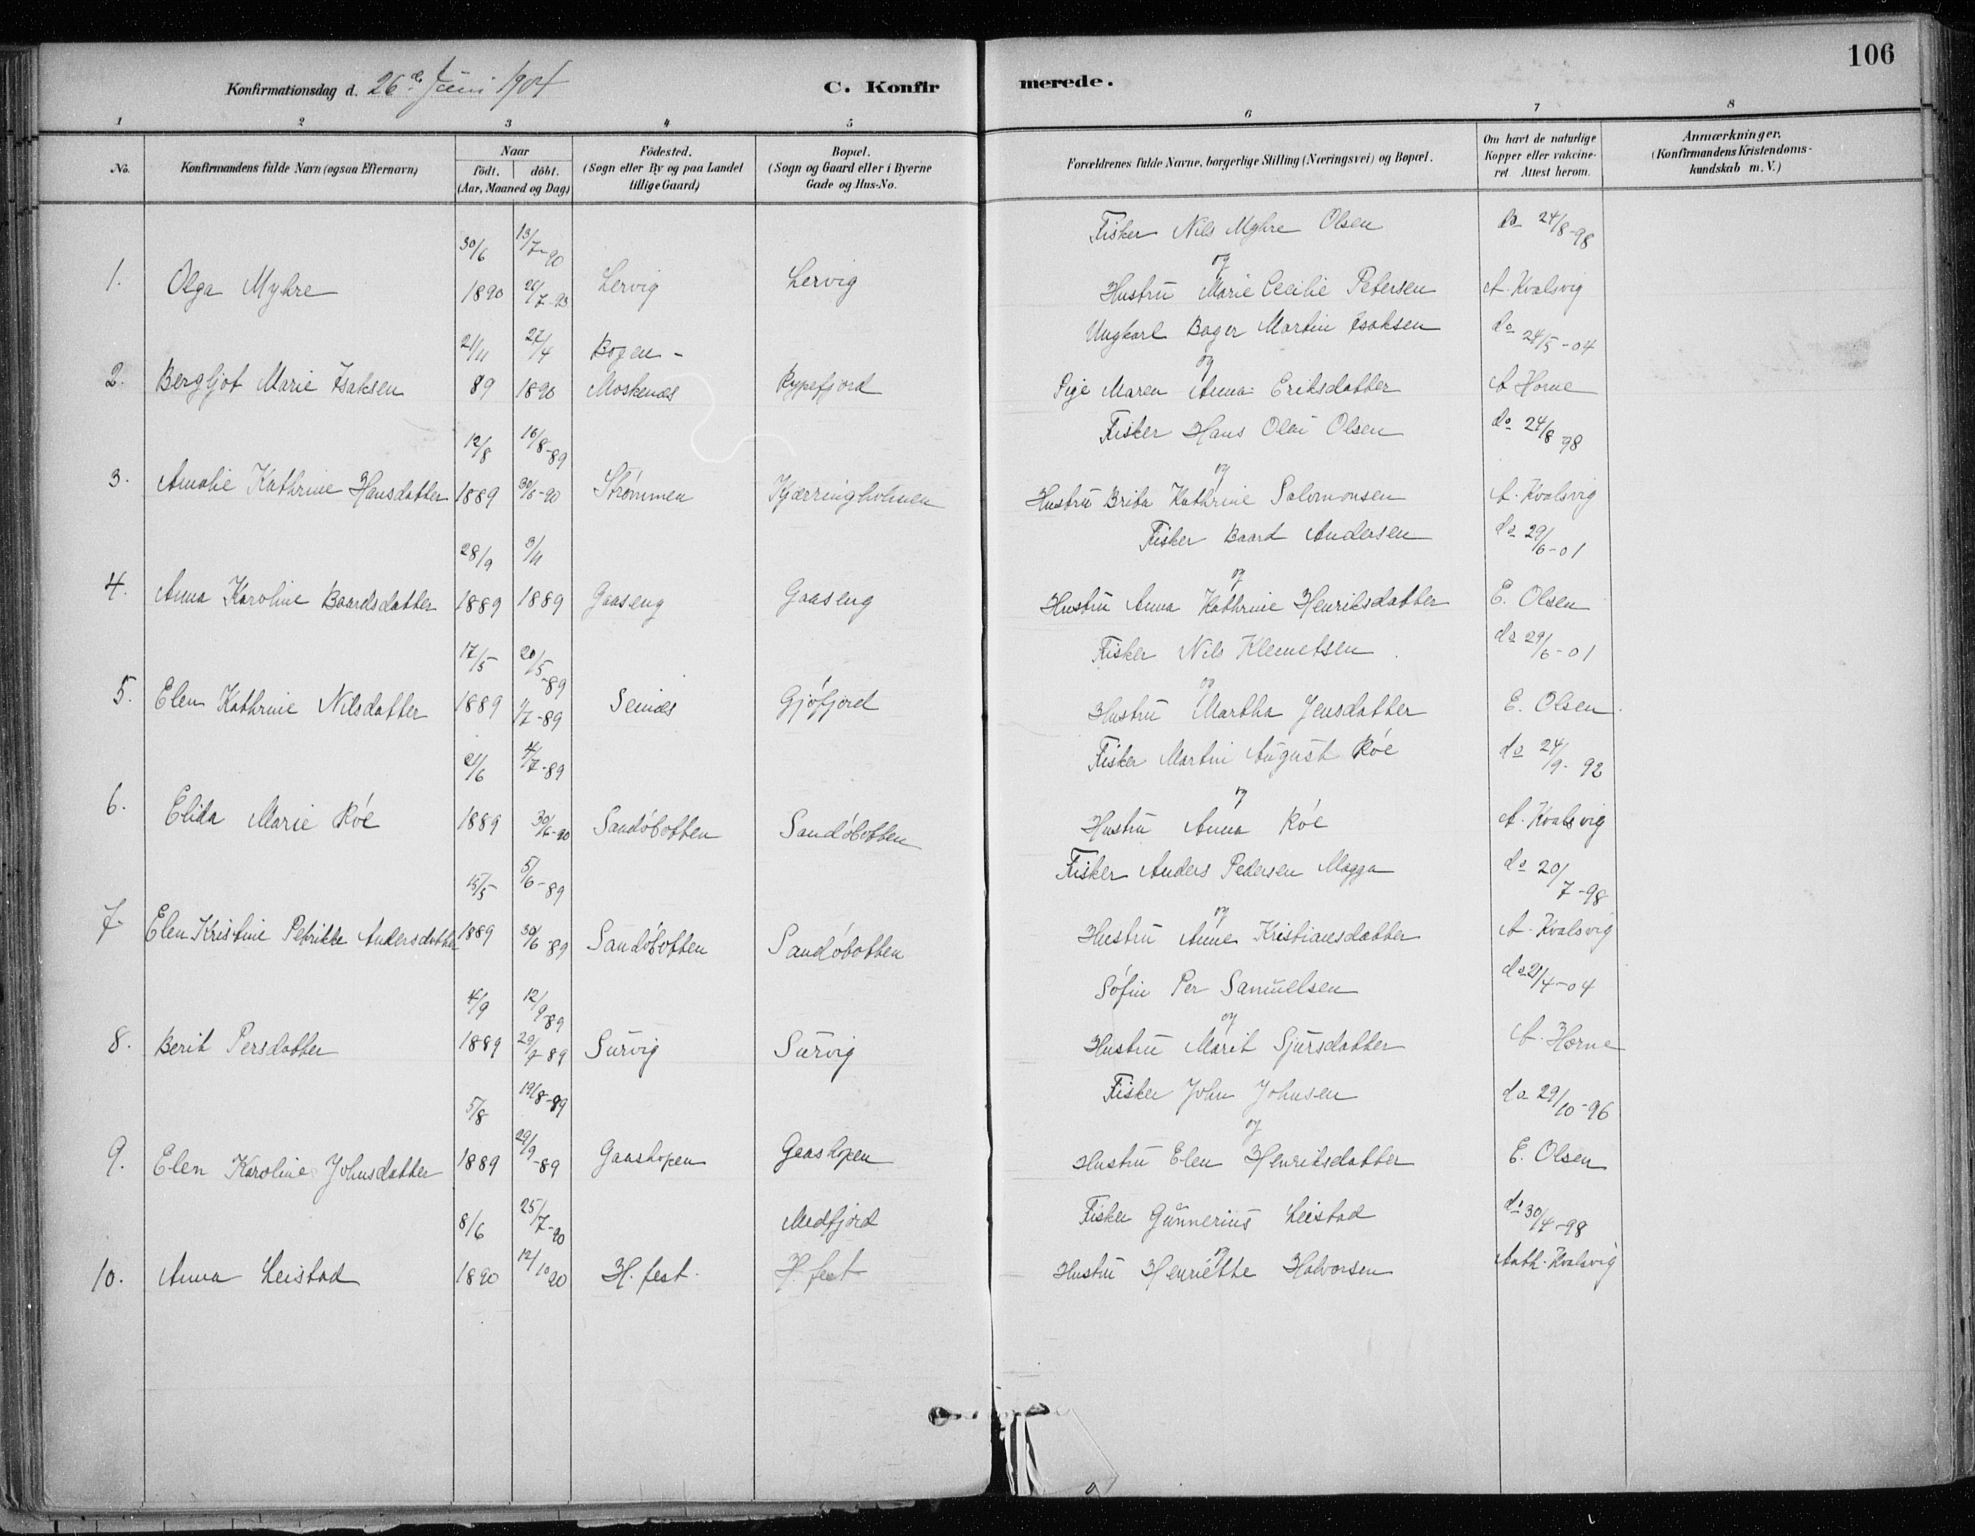 106
Konfirmationsdag d. 26de Juni 1904 C. Konfirmerede.
1 2 3 4 5 6 7 8
No. Konfirmandens fulde Navn (ogsaa Efternavn) Naar födt. döbt. (Aar, Maaned og Dag) Födested. (Sogn eller By og paa Landet tillige Gaard) Bopæl. (Sogn og Gaard eller i Byerne Gade og Hus-No. Forældrenes fulde Navne, borgerlige Stilling (Næringsvei) og Bopæl. Om havt de naturlige Kopper eller vakcineret. Attest herom. Anmærkninger. (Konfirmandens Kristendomskundskab m. V.)
30/6 13/7-90 Fisker Nils Myhre Olsen 24/8-98
og
1. Olga Myhre 1890 20/7-90 Lervig Lervig Hustru Marie Cecilie Petersen A. Kvalsvig
21/11 27/4 Bogen - Ungkarl Boger Martin Isaksen do 24/5-04
og
2. Bergljot Marie Isaksen 89 1890 Moskenes Rypefjord Pige Maren Anna Eriksdatter A Horne
12/8 16/8-89 Fisker Hans Olai Olsen do 24/8-98
og
3. Amalie Kathrine Hansdatter 1889 30/6-90 Strømmen Kjærringholmen Hustru Brita Kathrine Salomonsen A. Kvalsvig
28/9 3/11 Fisker Baard Andersen do 29/6-01
og
4. Anna Karoline Baardsdatter 1889 1889 Gaaseng Gaaseng Hustru Anna Kathrine Henriksdatter E. Olsen
17/5 20/5-89 Fisker Nils Klemetsen do 29/6-01
og
5. Elen Kathrine Nilsdatter 1889 /7-89 Seines Gjøfjord Hustru Martha Jensdatter E. Olsen
21/6 4/7-89 Fisker Martin August Róe do 24/9-92
og
6. Elida Marie Róe 1889 30/6-90 Sandöbotten Sandöbotten Hustru Anna Róe A. Kvalsvig
15/5 5/6-89 Fisker Anders Pedersen Magga do 20/7-98
og
7. Elen Kristine Petrikke Andersdatter 1889 30/6-89 Sandöbotten Sandöbotten Hustru Anne Kristiansdatter A. Kvalsvig
4/9 12/9-89 Söfin Per Samuelsen do 21/4-04
og
8. Berit Persdatter 1889 29/7-89 Survig Survig Hustru Marit Sjursdatter A. Horne
5/8 19/8-89 Fisker John Johnsen do 29/10-96
og
9. Elen Karoline Johnsdatter 1889 29/9-89 Gaashopen Gaashopen Hustru Elen Henriksdatter E. Olsen
8/6 25/7-90 Medfjord Fisker Gunnerius Leistad do 30/4-98
og
10. Anna Leistad 1890 12/10 90 H. fest. H. fest Hustru Henriette Halvorsen Anth. Kvalsvig